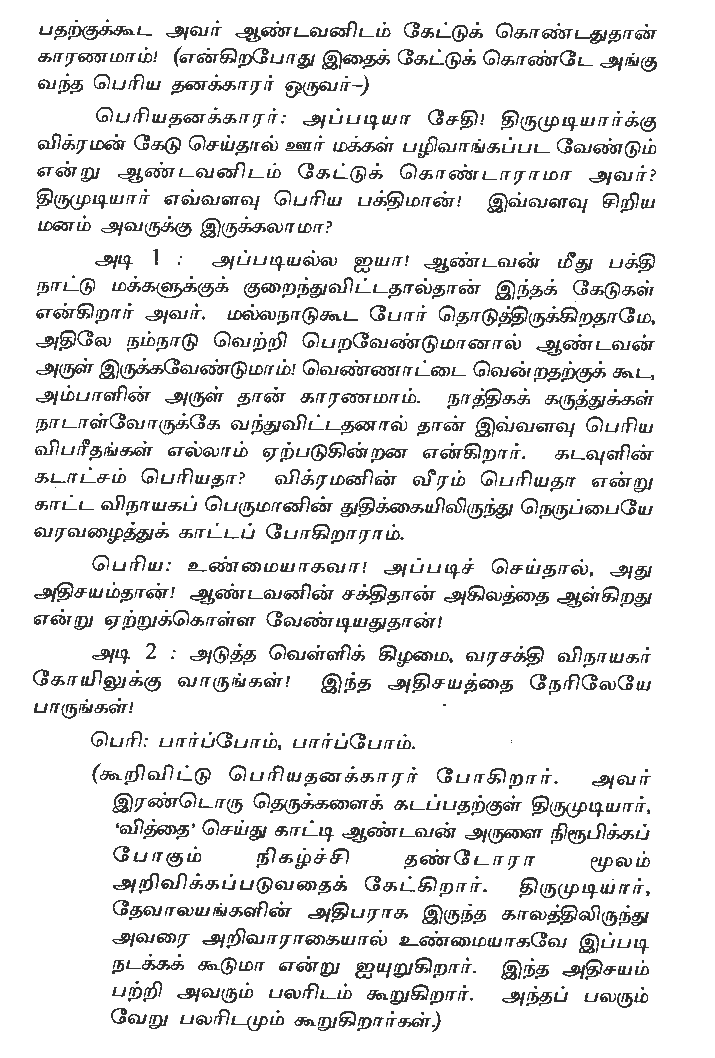 பதற்குக்கூட அவர் ஆண்டவனிடம் கேட்டுக் கொண்டதுதான்
காரணமாம்! (என்கிறபோது இதைக் கேட்டுக் கொண்டே அங்கு
வந்த பெரிய தனக்காரர் ஒருவர்–)
பெரியதனக்காரர்: அப்படியா சேதி! திருமுடியார்க்கு
விக்ரமன் கேடு செய்தால் ஊர் மக்கள் பழிவாங்கப்பட வேண்டும்
என்று ஆண்டவனிடம் கேட்டுக் கொண்டாராமா அவர்?
திருமுடியார் எவ்வளவு பெரிய பக்திமான்! இவ்வளவு சிறிய
மனம் அவருக்கு இருக்கலாமா?
அடி 1 : அப்படியல்ல ஐயா! ஆண்டவன் மீது பக்தி
நாட்டு மக்களுக்குக் குறைந்துவிட்டதால்தான் இந்தக் கேடுகள்
என்கிறார் அவர். மல்லநாடுகூட போர் தொடுத்திருக்கிறதாமே,
அதிலே நம்நாடு வெற்றி பெறவேண்டுமானால் ஆண்டவன்
அருள் இருக்கவேண்டுமாம்! வெண்ணாட்டை வென்றதற்குக் கூட,
அம்பாளின் அருள் தான் காரணமாம். நாத்திகக் கருத்துக்கள்
நாடாள்வோருக்கே வந்துவிட்டதனால் தான் இவ்வளவு பெரிய
விபரீதங்கள் எல்லாம் ஏற்படுகின்றன என்கிறார். கடவுளின்
கடாட்சம் பெரியதா? விக்ரமனின் வீரம் பெரியதா என்று
காட்ட விநாயகப் பெருமானின் துதிக்கையிலிருந்து நெருப்பையே
வரவழைத்துக் காட்டப் போகிறாராம்.
பெரிய: உண்மையாகவா! அப்படிச் செய்தால், அது
அதிசயம்தான்! ஆண்டவனின் சக்திதான் அகிலத்தை ஆள்கிறது
என்று ஏற்றுக்கொள்ள வேண்டியதுதான்!
அடி 2 : அடுத்த வெள்ளிக் கிழமை, வரசக்தி விநாயகர்
கோயிலுக்கு வாருங்கள்! இந்த அதிசயத்தை நேரிலேயே
பாருங்கள்!
பெரி: பார்ப்போம், பார்ப்போம்.
(கூறிவிட்டு பெரியதனக்காரர் போகிறார். அவர்
இரண்டொரு தெருக்களைக் கடப்பதற்குள் திருமுடியார்,
‘வித்தை’ செய்து காட்டி ஆண்டவன் அருளை நிரூபிக்கப்
போகும் நிகழ்ச்சி தண்டோரா மூலம்
அறிவிக்கப்படுவதைக் கேட்கிறார். திருமுடியார்,
தேவாலயங்களின் அதிபராக இருந்த காலத்திலிருந்து
அவரை அறிவாராகையால் உண்மையாகவே இப்படி
நடக்கக் கூடுமா என்று ஐயுறுகிறார். இந்த அதிசயம்
பற்றி அவரும் பலரிடம் கூறுகிறார். அந்தப் பலரும்
வேறு பலரிடமும் கூறுகிறார்கள்.)